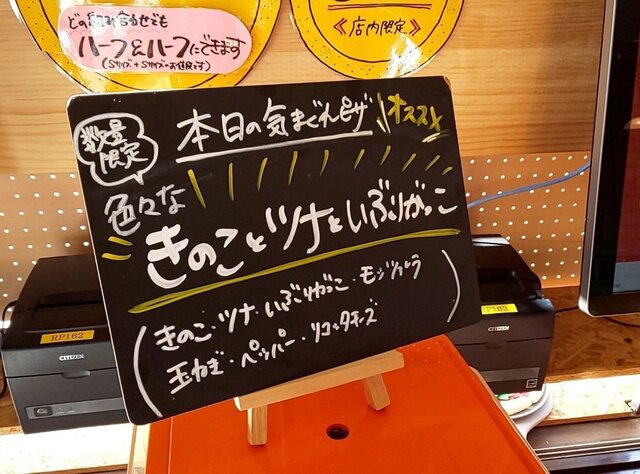 どの組み合わせでも
ハーフ&ハーフにできます
(Sサイズ+Sサイズがお得です)
《店内限定》
数量
限定
本日の気まぐれピザ
オススメ
色々な
きのことツナといぶりがっこ
(きのこ・ツナ・いぶりがっこ・モッツァレラ
玉ねぎ・ペッパー・リコッタチーズ)
RP162
CITIZEN
CITIZEN